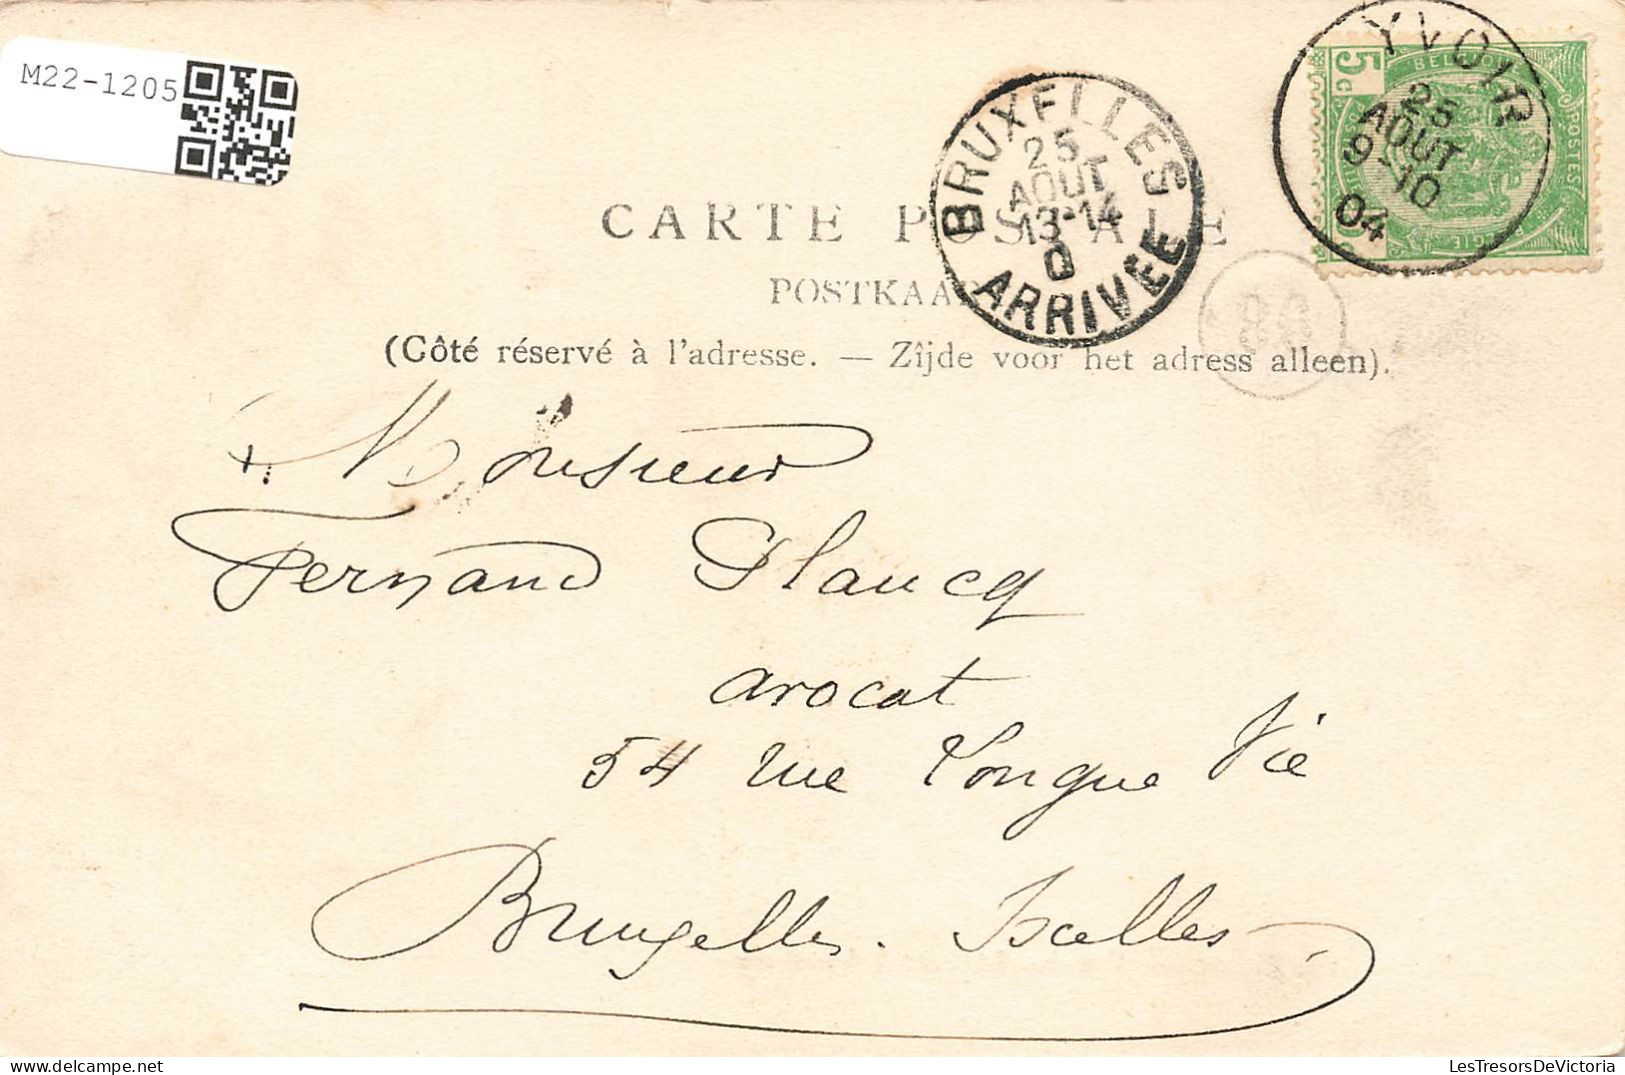 M22-1205
YVOIR
25
AOUT
9-10
04
5c
BELGIQUE
POSTES
BRUXELLES
25
AOUT
13-14
ARRIVEE
CARTE POSTALE
POSTKAART
(Côté réservé à l'adresse. — Zîjde voor het adress alleen).
Monsieur
Fernand Plancq
avocat
54 rue Longue Vie
Bruxelles. Ixelles
LesTresorsDeVictoria